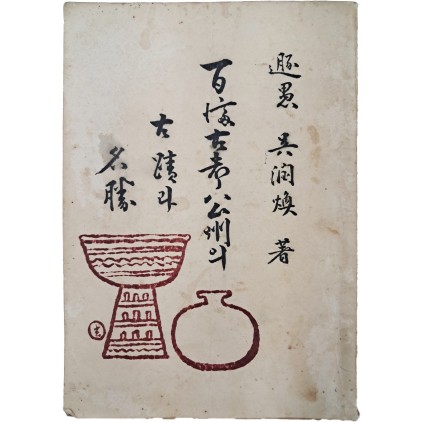 遯愚 吳潤煥 著
百濟古都 公州의
古蹟과
名勝